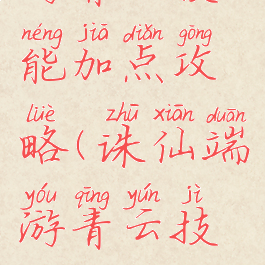 néng jiā diǎn gōng
能加点攻
lüè zhū xiān duān
略(诛仙端
yóu qīng yún jì
游青云技